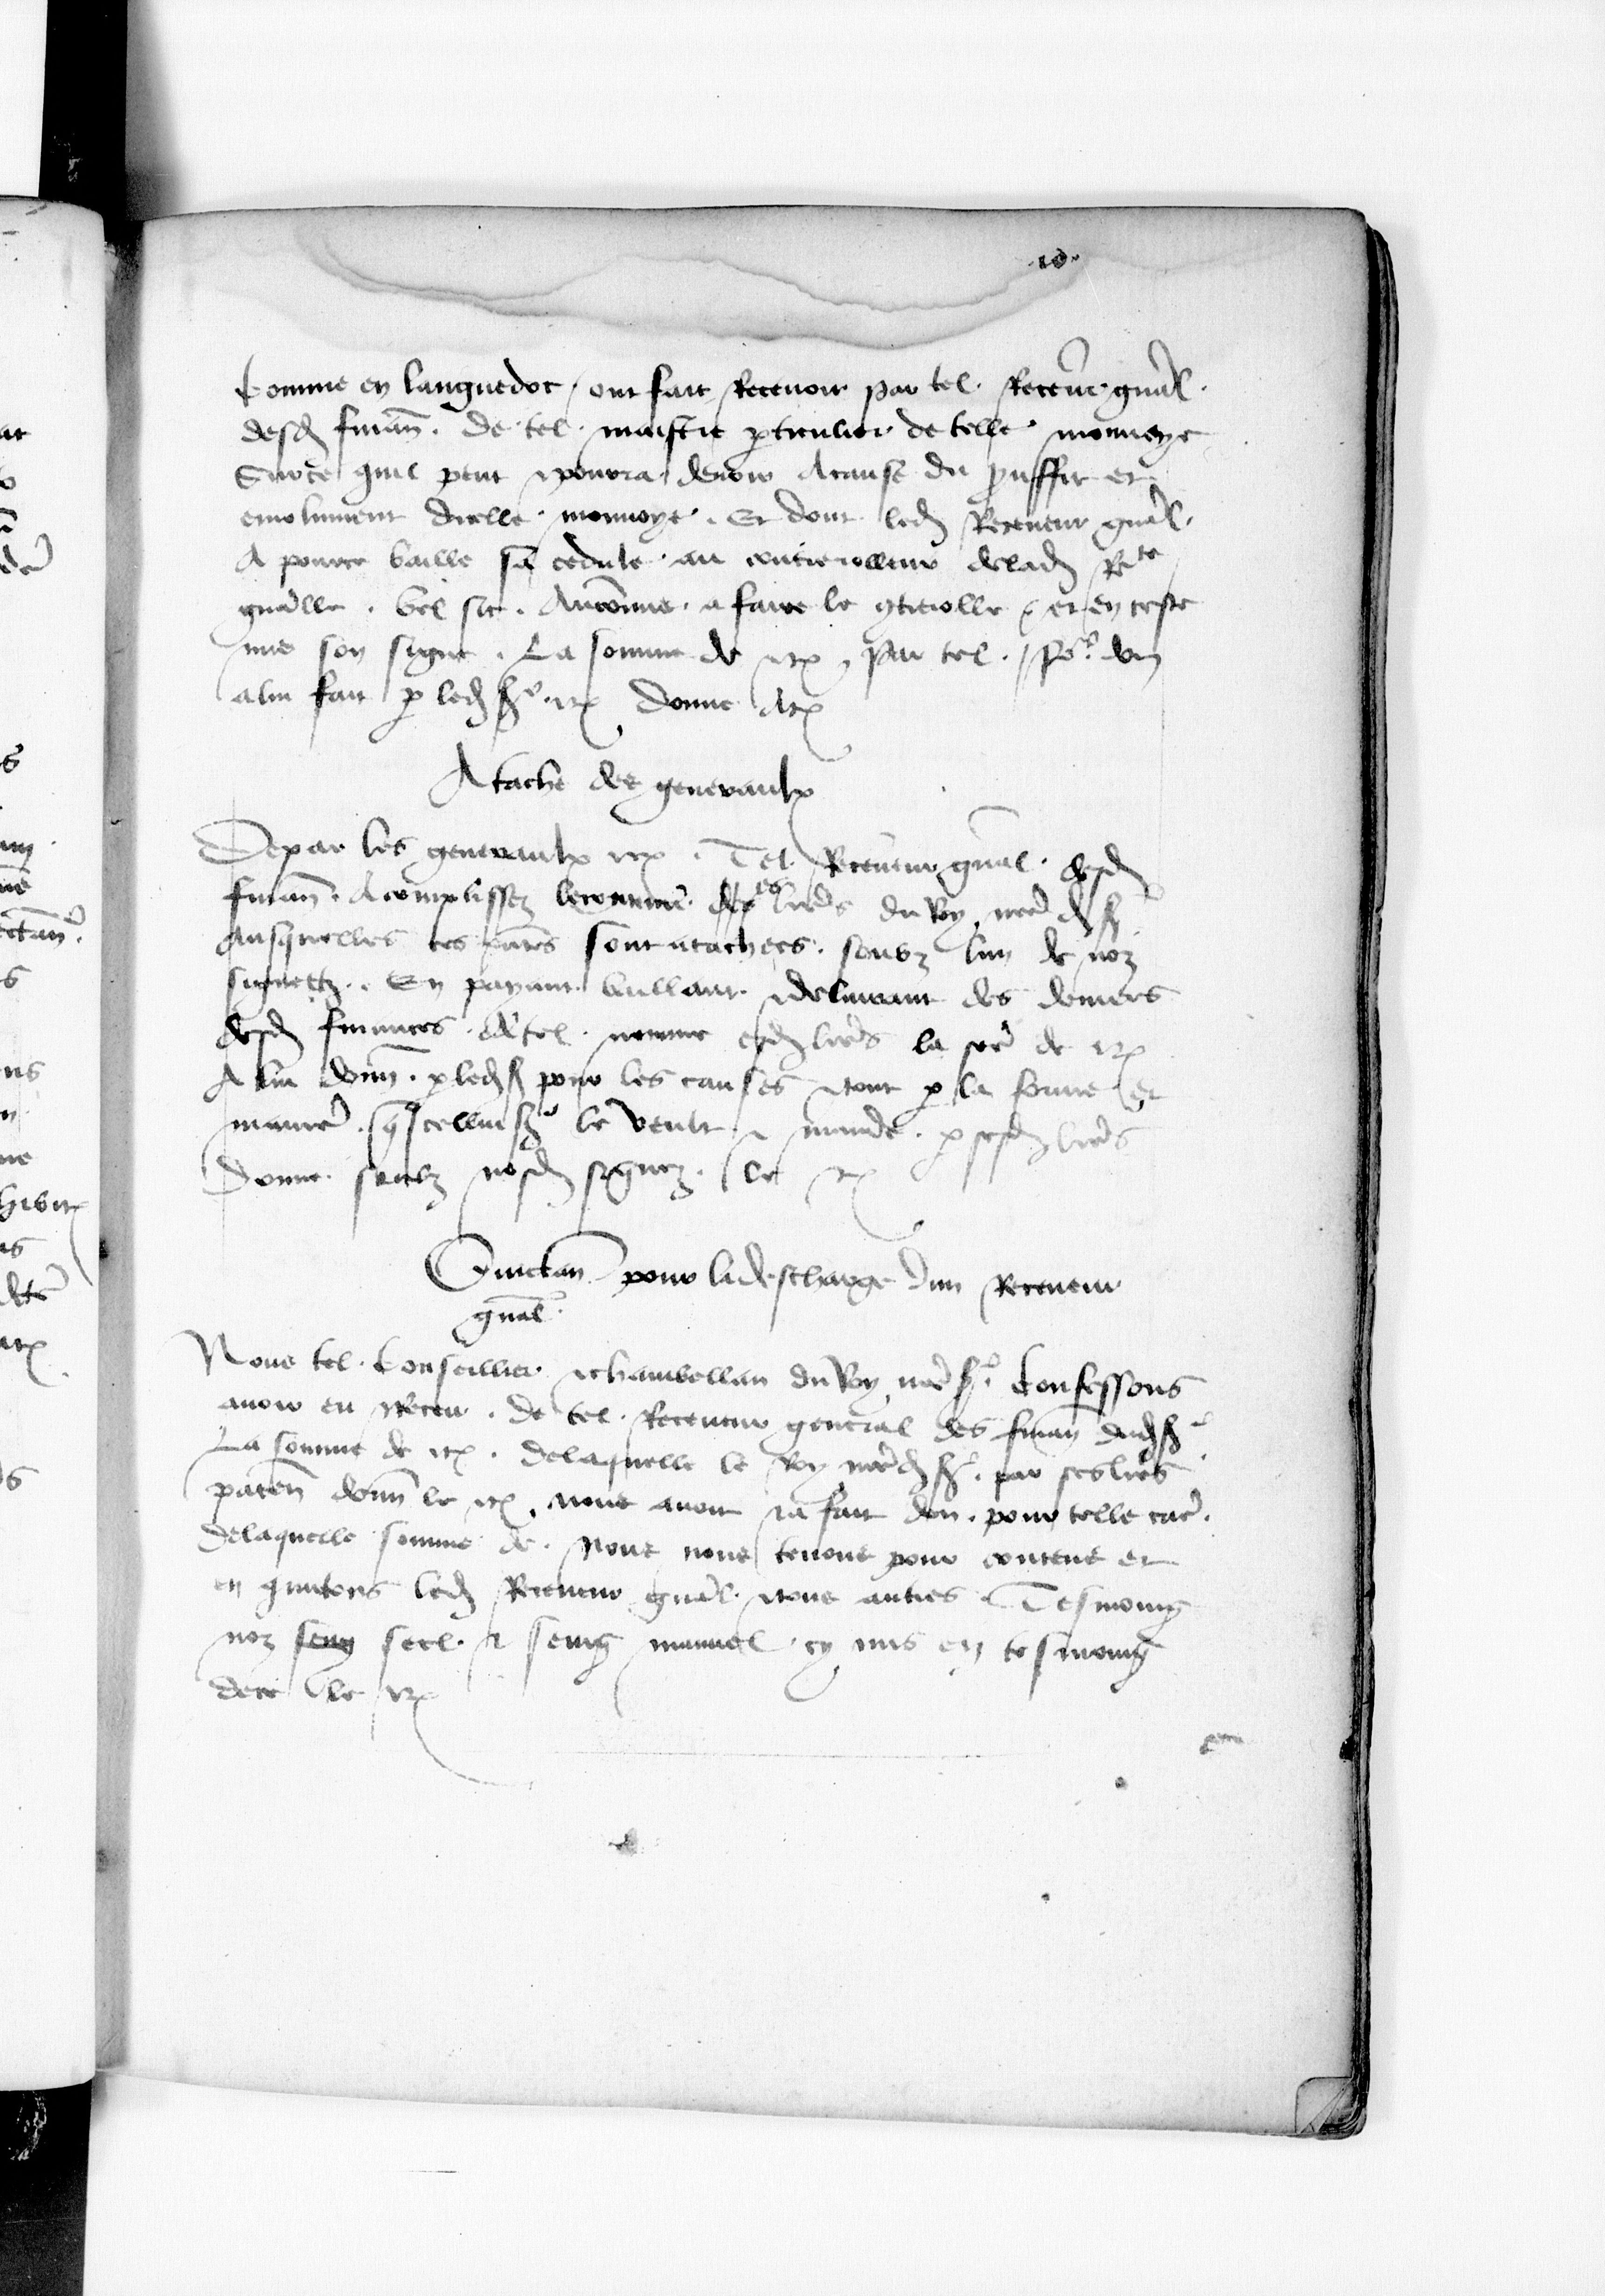 Comme en languedoc ont fait Recevoir par tel. Recevr gnal.
desd finan. de tel. maistre pticulier de telle monnoye
Sur ce quil peut & pourra devoir A cause du prouffit et
emolument dicelle monnoye. Et dont led Receveur gnal.
A pource baille sa cedule au contrerolleur de lad Rte
gnalle. tel etc. Au comme a faire le contrerolle et en ceste
mis son signe. La somme de etc par tel. don
a lui fait p led sr etc donne etc
Atache des generaulx
De par les generaulx etc. Tel Receveur gnal. desd
finan. Acomplissez le contenu es lres du Roy nre d sr
Ausquelles ces pntes sont atachees. soubz lun de noz
signetz. En payant baillant & delivrant des deniers
desd finances. A tel. nomme esd lres la soe de etc
A lui donn. p led sr pour les causes & tout p la forme et
maniere q icellui sr le veult & mande. p sesd lres
Donne soubz nosd signez. le etc
Quictan pour la descharge dun Receveur
gnal.
Nous tel. Conseiller & chambellan du Roy nre sr. Confessons
avoir eu & Receu. de tel. Receveur general des finan dud sr
La somme de etc. de laquelle le Roy nred sr. par ses lres
paten donn le etc. nous avoit ia fait don. pour telle cae.
De laquelle somme de. Nous nous tenons pour contens et
en quictons led Receveur gnal. & tous autres. Tesmoing
noz seing seel. & seing manuel cy mis en tesmoing
de ce le etc